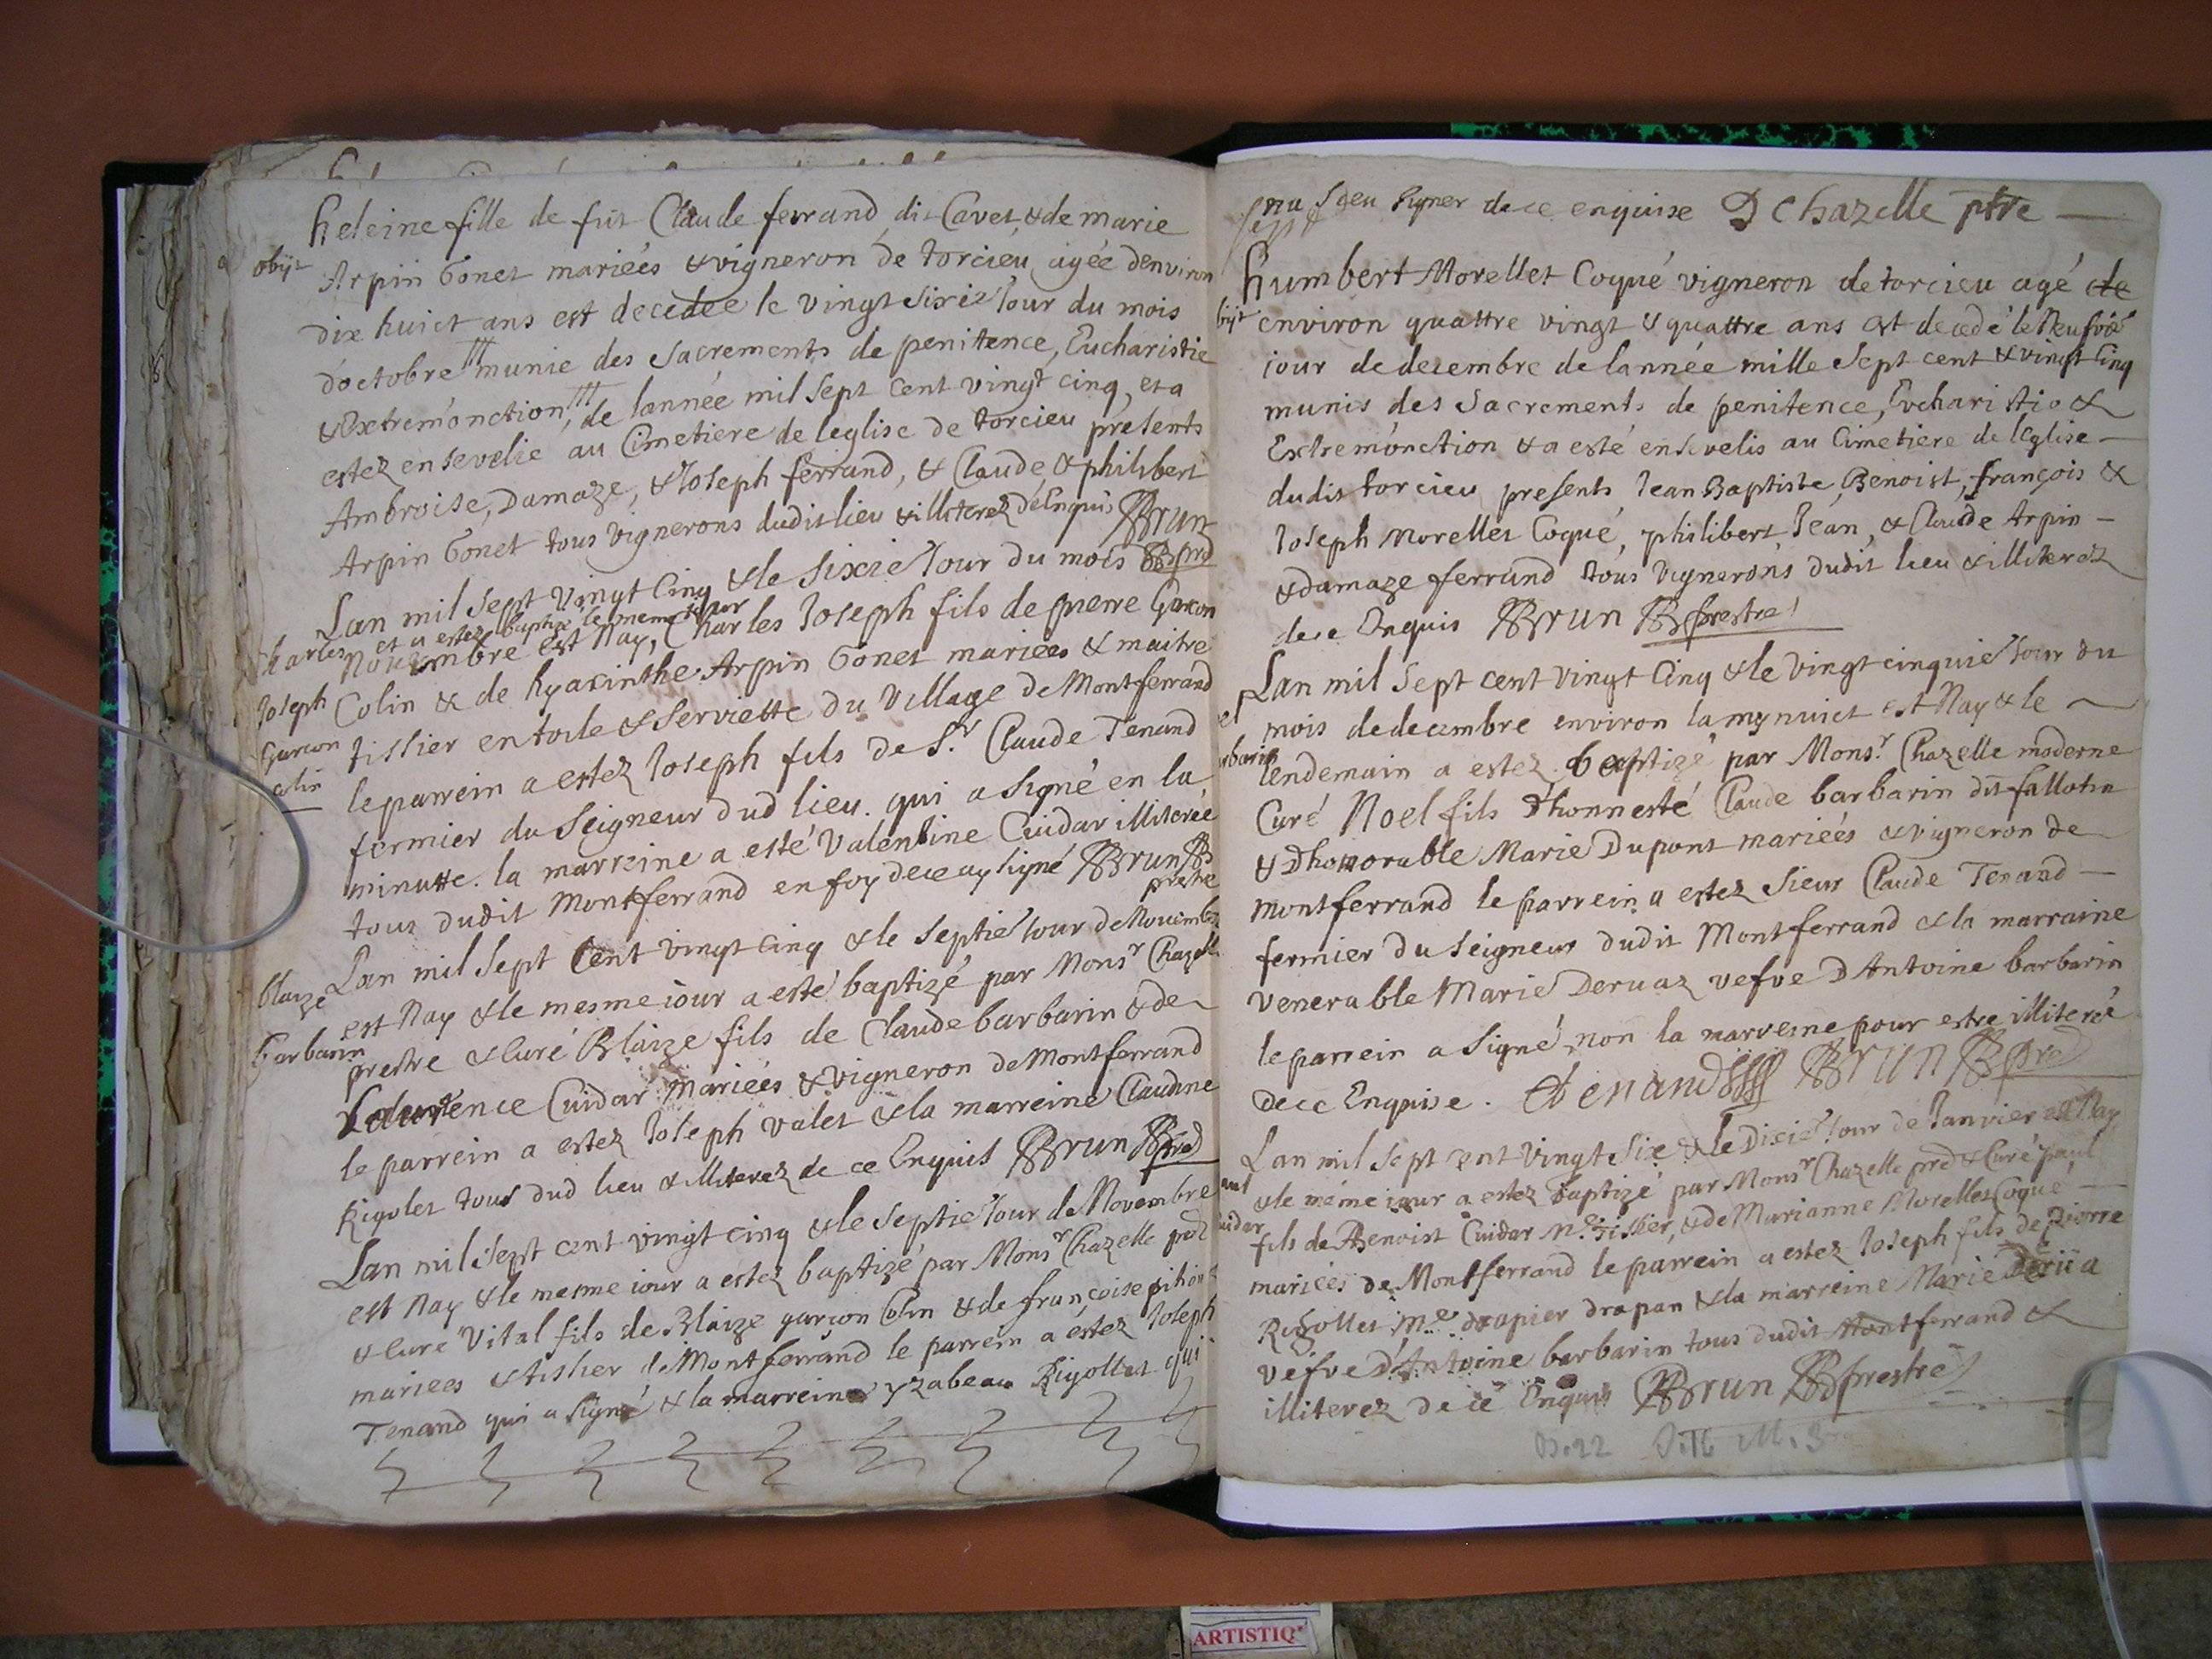 heleine fille de füt Claude ferrand, dit Cavet, & de marie
obijt
Arpin Gonet mariées & vigneron de torcieu agée denviron
dix huict ans est decedee le vingt sixie Iour du mois
d'octobre munie des Sacrements de penitence, Eucharistie
& Extremonction, de lannée mil sept cent vingt cinq, et a
estez ensevelie au Cimetiere de leglise de torcieu presents
Ambroise, Damaze, & Ioseph ferrand, & Claude, & philibert
Arpin Gonet tous vignerons dudit lieu & illiterez De Enquis BBrun
Lan mil Sept Vingt Cinq & le Sixie Iour du mois
et a estez baptizé le meme iour
Charles
Novembre est Nay, Charles Ioseph fils de pierre Garcon
Ioseph
Colin & de hyacinthe Arpin Gonet mariées & maitre
Garcon
tissier en toile & Serviette du Village de Montferrand
colin
le parrein a estez Ioseph fils de S.r Claude Tenand
fermier du Seigneur dud lieu. qui a signé en la
minutte. la marreine a esté Valentine Cuidar illiterée
tous dudit Montferrand en foy de ce ay signé BBrun
prestre
Lan mil Sept Cent vingt Cinq & le Septie Iour de Novembre
blaize
est Nay & le mesme iour a esté baptizé par Monsr Chazelle
barbarin
prestre & Curé Blaize fils de Claude barbarin & de
Laurence Cuidar Mariées & vigneron de Montferrand
le parrein a estez Ioseph Valet & la marreine Claudine
Rigolet tous dud lieu & illiterez de ce Enquis BBrun pre
Lan mil Sept cent vingt cinq & le Septie Iour de Novembre
est Nay & le mesme iour a estez baptizé par Monsr Chazelle pre
& Curé Vital fils de Blaize garçon Colin & de françoise pithion
mariees & tissier de Montferrand le parrein a estez Ioseph
Tenand qui a signé & la marreine yzabeau Rigollet qui
na sceu signer de ce enquise D Chazelle ptre
humbert Morellet Coqué vigneron de torcieu agé de
bijt
environ quattre vingt & quattre ans est decedé le Neufvie
iour de decembre de lannée mille Sept cent & vingt Cinq
munis des Sacrements de penitence, Evcharistie &
Extremonction & a esté ensevelis au Cimetiere de leglise
dudit torcieu presents Iean Baptiste, Benoist, françois &
Ioseph Morellet Coqué, philibert Iean, & Claude Arpin
& damaze ferrand tous Vignerons dudit lieu & illiterez
de ce Enquis BBrun prestre
Lan mil Sept cent vingt Cinq & le vingt cinquie Iour du
el
mois de decembre environ la mynuict est Nay & le
rbarin
lendemain a estez baptizé par Monsr Chazelle moderne
Curé Noel fils d'honnesté Claude barbarin dit fallotin
& D'honorable Marie Dupont mariées & vigneron de
montferrand le parrein a estez Sieur Claude Tenand
fermier du Seigneur dudit Montferrand & la marraine
venerable Marie Deruaz vefve D Antoine barbarin
le parrein a signé non la marreine pour estre illiterée
de ce Enquise. CTenand BBrun pre
Lan mil Sept cent vingt Six & le Dixie Iour de Ianvier est Nay
aul
& le même iour a estez baptizé par Monsr Chazelle pre & Curé paul
uidar
fils de Benoist Cuidar Me tissier, & de Marianne Morellet Coqué
mariées de Montferrand le parrein a estez Ioseph fils de pierre
Rigollet Me drapier drapan & la marreine Marie
vefve D'Antoine barbarin tous dudit Montferrand &
illiterez de ce Enquis BBrun prestre
ARTISTIQ